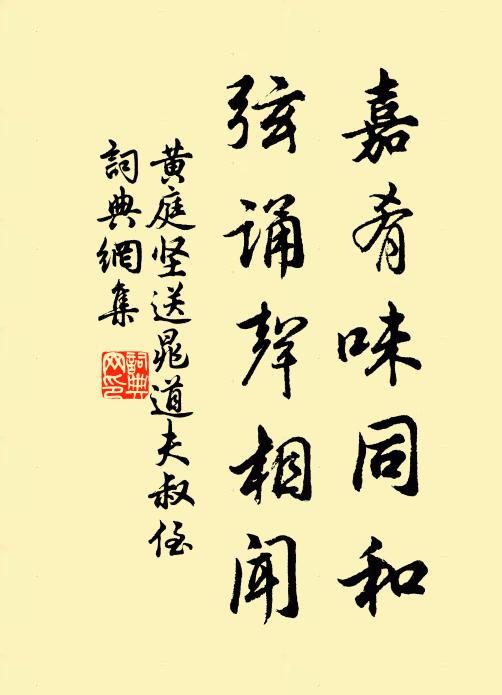 嘉肴味同和
弦诵聲相闻
黄庭坚送晁道夫叔侄
詞典網集
詞典网印